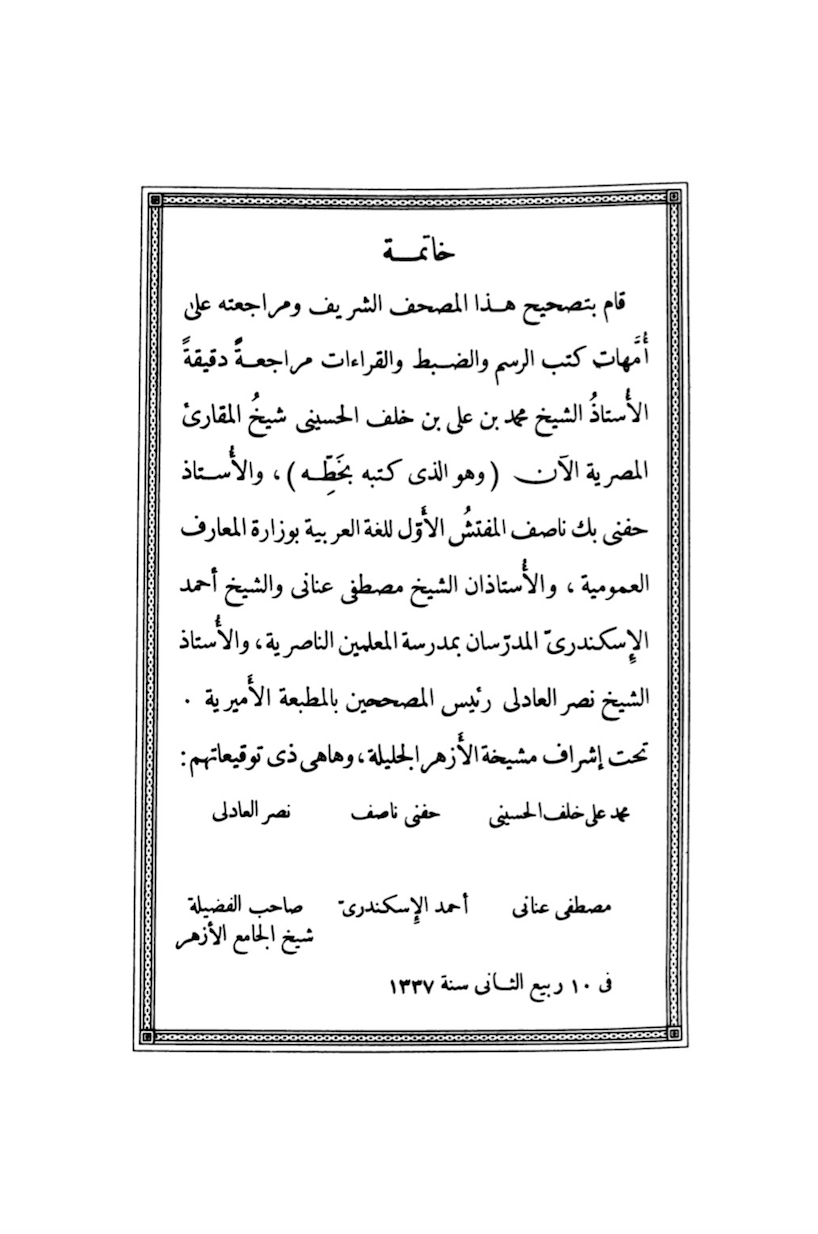 خاتمـــة
قام بتصحيح هــذا المصحف الشريف ومراجعته على
أُمَّهات كتب الرسم والضـبط والقراءات مراجعــةً دقيقةً
الأُستاذُ الشيخ محمد بن على بن خلف الحسينى شيخُ المقارئ
المصرية الآن (وهو الذى كتبه بخَطِّــه)، والأُســتاذ
حفنى بك ناصف المفتشُ الأَوّل للغة العربية بوزارة المعارف
العمومية ، والأُستاذان الشيخ مصطفى عنانى والشيخ أحمد
الإِسكندرىّ المدرّسان بمدرسة المعلمين الناصرية، والأُستاذ
الشيخ نصر العادلى رئيس المصححين بالمطبعة الأَميرية .
تحت إشراف مشيخة الأَزهر الجليلة، وهاهى ذى توقيعاتهم :
محمد على خلف الحسينى حفنى ناصف نصر العادلى
مصطفى عنانى أحمد الإِسكندرىّ صاحب الفضيلة
شيخ الجامع الأزهر
فى ١٠ ربيع الثــانى سنة ١٣٣٧